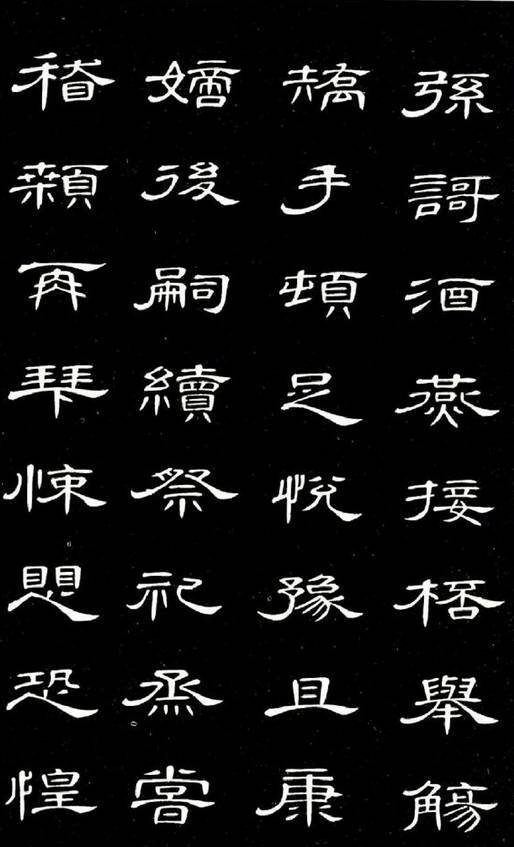 弦謌酒燕接桮舉觴
矯手頓足悅豫且康
嫡後嗣續祭祀烝嘗
稽顙再拜悚愳恐惶